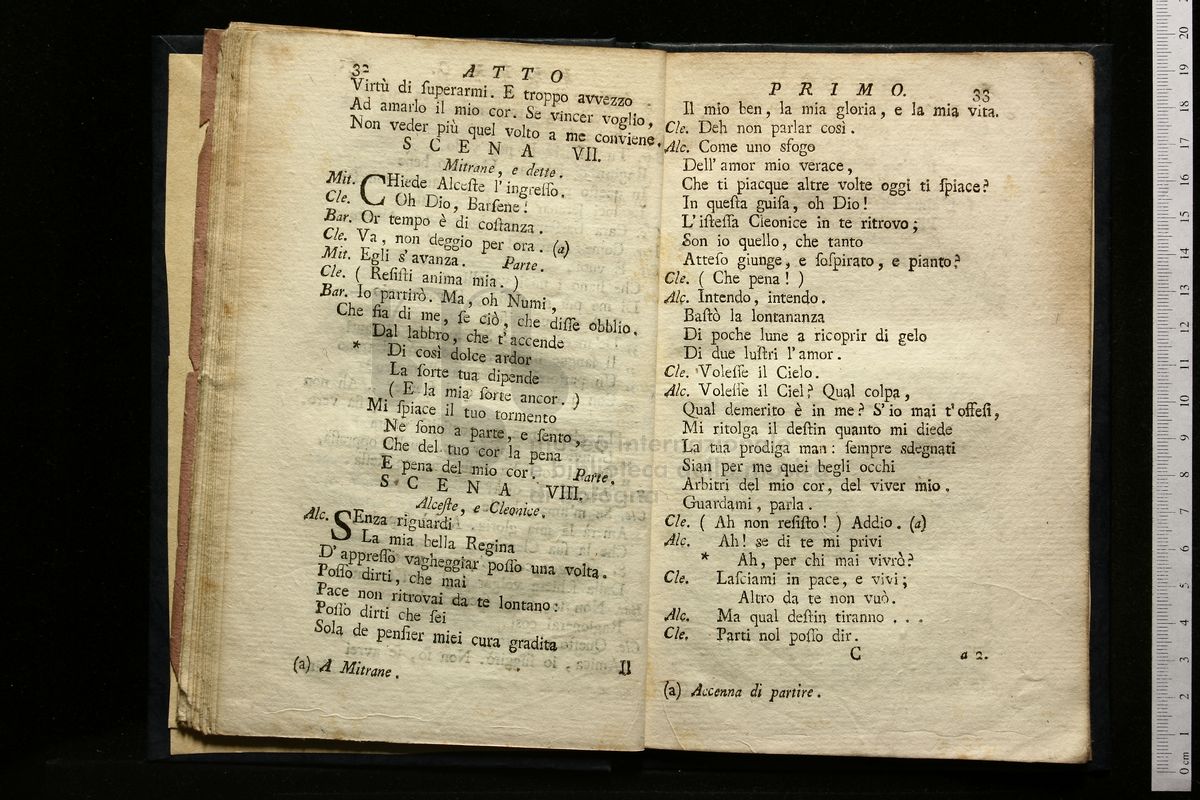 32 ATTO
Virtù di ſuperarmi. E troppo avvezzo
Ad amarlo il mio cor. Se vincer voglio,
Non veder più quel volto a me conviene.
SCENA VII.
Mitrane, e dette.
Mit. CHiede Alceſte l'ingreſſo.
Cle. Oh Dio, Barſene!
Bar. Or tempo è di coſtanza.
Cle. Va, non deggio per ora. (a)
Mit. Egli s'avanza. Parte.
Cle. (Reſiſti anima mia.)
Bar. Io partirò. Ma, oh Numi,
Che ſia di me, ſe ciò, che diſſe obblio.
Dal labbro, che t'accende
* Di così dolce ardor
La ſorte tua dipende
(E la mia ſorte ancor.)
Mi ſpiace il tuo tormento
Ne ſono a parte, e ſento,
Che del tuo cor la pena
E pena del mio cor. Parte.
SCENA VIII.
Alceſte, e Cleonice.
Alc. SEnza riguardi
La mia bella Regina
D'appreſſo vagheggiar poſſo una volta.
Poſſo dirti, che mai
Pace non ritrovai da te lontano:
Poſſo dirti che ſei
Sola de penſier miei cura gradita
Il
(a) A Mitrane.
PRIMO. 33
Il mio ben, la mia gloria, e la mia vita.
Cle. Deh non parlar così.
Alc. Come uno sfogo
Dell'amor mio verace,
Che ti piacque altre volte oggi ti ſpiace?
In queſta guiſa, oh Dio!
L'iſteſſa Cleonice in te ritrovo;
Son io quello, che tanto
Atteſo giunge, e ſoſpirato, e pianto?
Cle. (Che pena!)
Alc. Intendo, intendo.
Baſtò la lontananza
Di poche lune a ricoprir di gelo
Di due luſtri l'amor.
Cle. Voleſſe il Cielo.
Alc. Voleſſe il Ciel? Qual colpa,
Qual demerito è in me? S'io mai t'offeſi,
Mi ritolga il deſtin quanto mi diede
La tua prodiga man: ſempre sdegnati
Sian per me quei begli occhi
Arbitri del mio cor, del viver mio.
Guardami, parla.
Cle. (Ah non reſiſto!) Addio. (a)
Alc. Ah! se di te mi privi
* Ah, per chi mai vivrò?
Cle. Laſciami in pace, e vivi;
Altro da te non vuò.
Alc. Ma qual deſtin tiranno...
Cle. Parti nol poſſo dir.
C a 2.
(a) Accenna di partire.